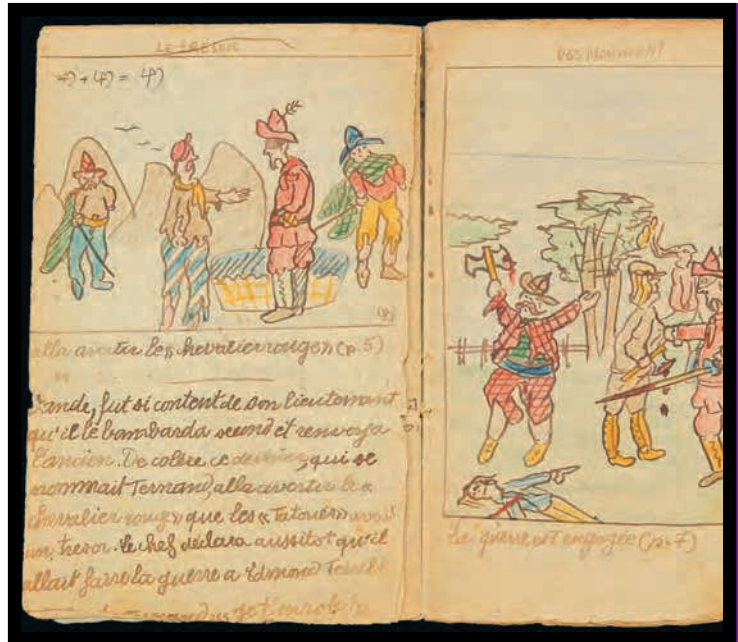 LE TRESOR
alla avertir le « chevalier rouge » (p. 5)
bande, fut si content de son lieutenant
qu'il le bombarda second et renvoya
l'ancien. De colère ce dernier, qui se
nommait Ternand, alla avertir le «
chevalier rouge » que les « Tatoués »
un tresor. Le chef déclara aussitot qu'il
allait faire la guerre a Edmond
DES
La guerre est engagée (p. 7)